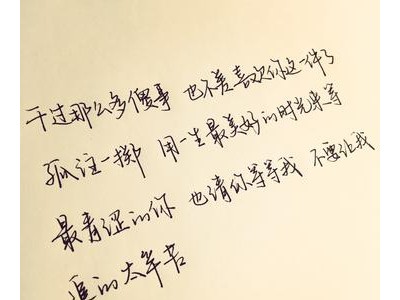 干过那么多傻事 也不差喜欢你这一件了
孤注一掷 用一生最美好的时光来等
最青涩的你 也请你等等我 不要让我
追的太辛苦